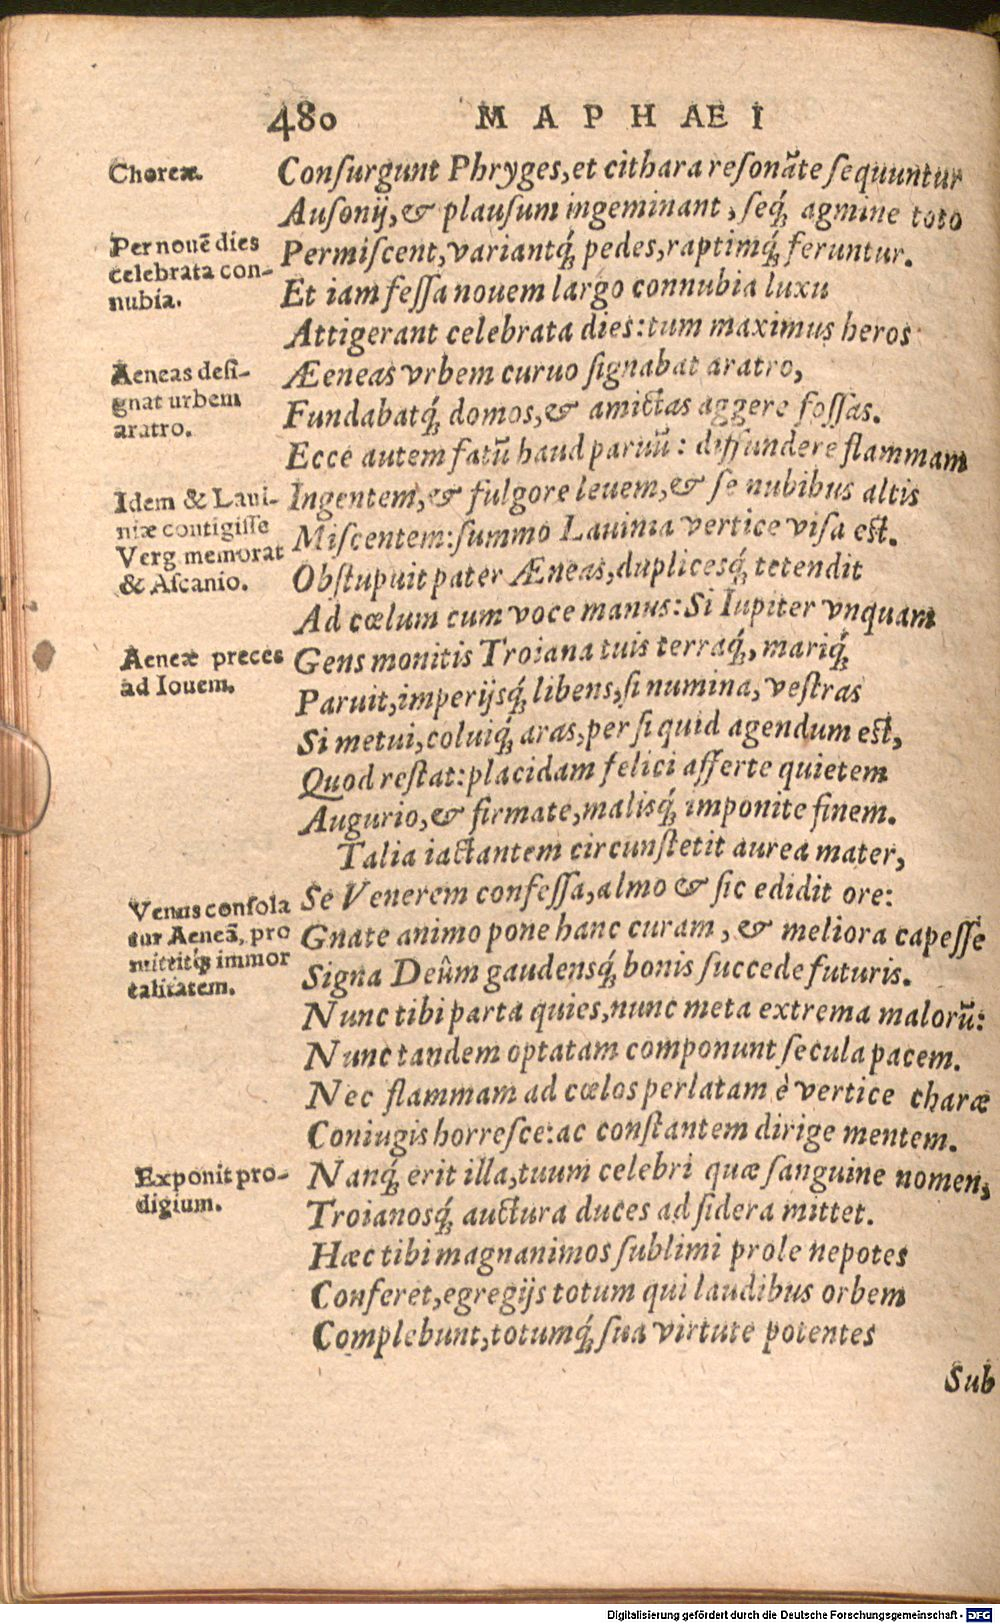 480 MAPHAEI
Choreæ.
Conſurgunt Phryges, et cithara reſonāte ſequuntur
Auſonij, & plauſum ingeminant, ſeq́ꝫ agmine toto
Pernouē dies
celebrata con-
nubia.
Permiſcent, variantq́ꝫ pedes, raptimq́ꝫ feruntur.
Et iam feſſa nouem largo connubia luxu
Attigerant celebrata dies: tum maximus heros
Aeneas deſi-
gnat urbem
aratro.
Æneas vrbem curuo ſignabat aratro,
Fundabatq́ꝫ domos, & amictas aggere foſſas.
Ecce autem fatū haud paruū: diffundere flammam
Idem & Laui-
niæ contigiſſe
Verg. memorat
& Aſcanio.
Ingentem, & fulgore leuem, & ſe nubibus altis
Miſcentem: ſummo Lauinia vertice viſa est.
Obſtupuit pater Æneas, duplicesq́ꝫ tetendit
Ad cœlum cum voce manus: Si Iupiter vnquam
Aeneæ preces
ad Iouem.
Gens monitis Troiana tuis terraq́ꝫ, mariq́ꝫ
Paruit, imperijsq́ꝫ libens, ſi numina, veſtras
Si metui, coluiq́ꝫ aras, per ſi quid agendum est,
Quod reſtat: placidam felici afferte quietem
Augurio, & firmate, malisq́ꝫ imponite finem.
Talia iactantem circunſtetit aurea mater,
Venus conſola
tur Aeneā, pro
mittitqꝫ immor
talitatem.
Se Venerem confeſſa, almo & ſic edidit ore:
Gnate animo pone hanc curam, & meliora capeſſe
Signa Deûm gaudensq́ꝫ bonis ſuccede futuris.
Nunc tibi parta quies, nunc meta extrema malorū:
Nunc tandem optatam componunt ſecula pacem.
Nec flammam ad cœlos perlatam è vertice charæ
Coniugis horreſce: ac conſtantem dirige mentem.
Exponit pro-
digium.
Nanq́ꝫ erit illa, tuum celebri quæ ſanguine nomen,
Troianosq́ꝫ auctura duces ad ſidera mittet.
Hæc tibi magnanimos ſublimi prole nepotes
Conferet, egregijs totum qui laudibus orbem
Complebunt, totumq́ꝫ ſua virtute potentes
Sub
Digitalisierung gefördert durch die Deutsche Forschungsgemeinschaft - DFG